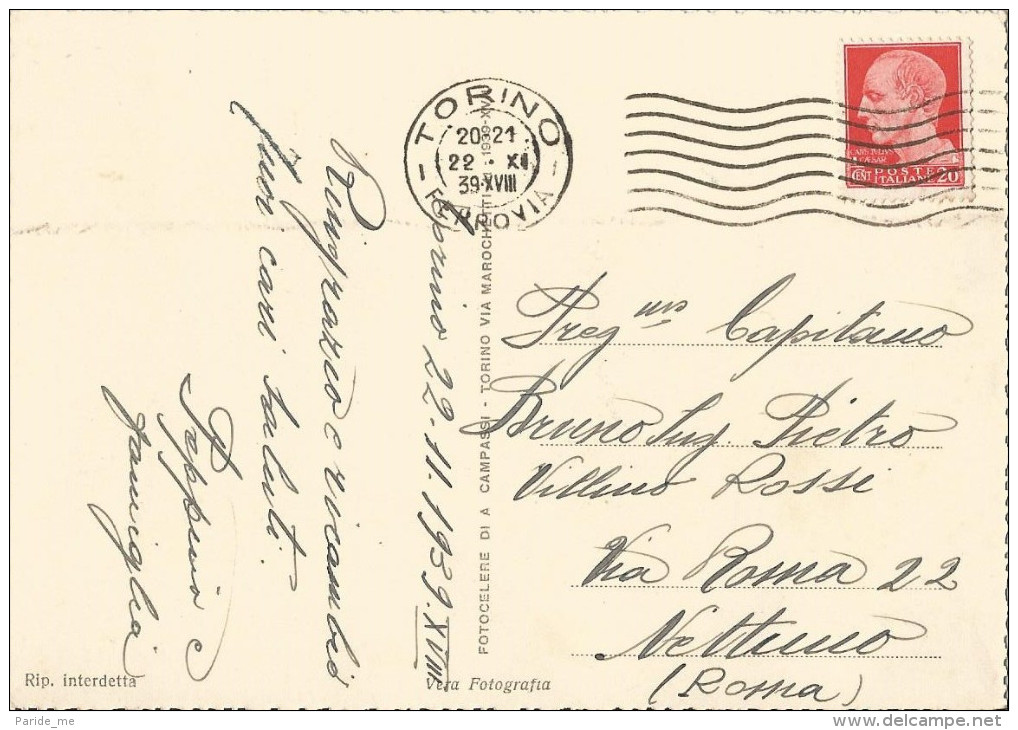 TORINO
20·21
22 · XI
39·XVIII
FERROVIA
C. IVLIVS
CAESAR
CENT POSTE ITALIANE 20
Torino 22-11-1939. XVIII
Ringrazio e ricambio
fuor cari saluti.
Peppino e
famiglia
FOTOCELERE DI A CAMPASSI - TORINO VIA MAROCHETTI 1939-XVII
Preg mo Capitano
Bruno Sig. Pietro
Villino Rossi
Via Roma 22
Nettuno
(Roma)
Rip. interdetta
Vera Fotografia
Paride_me
delcampe.net